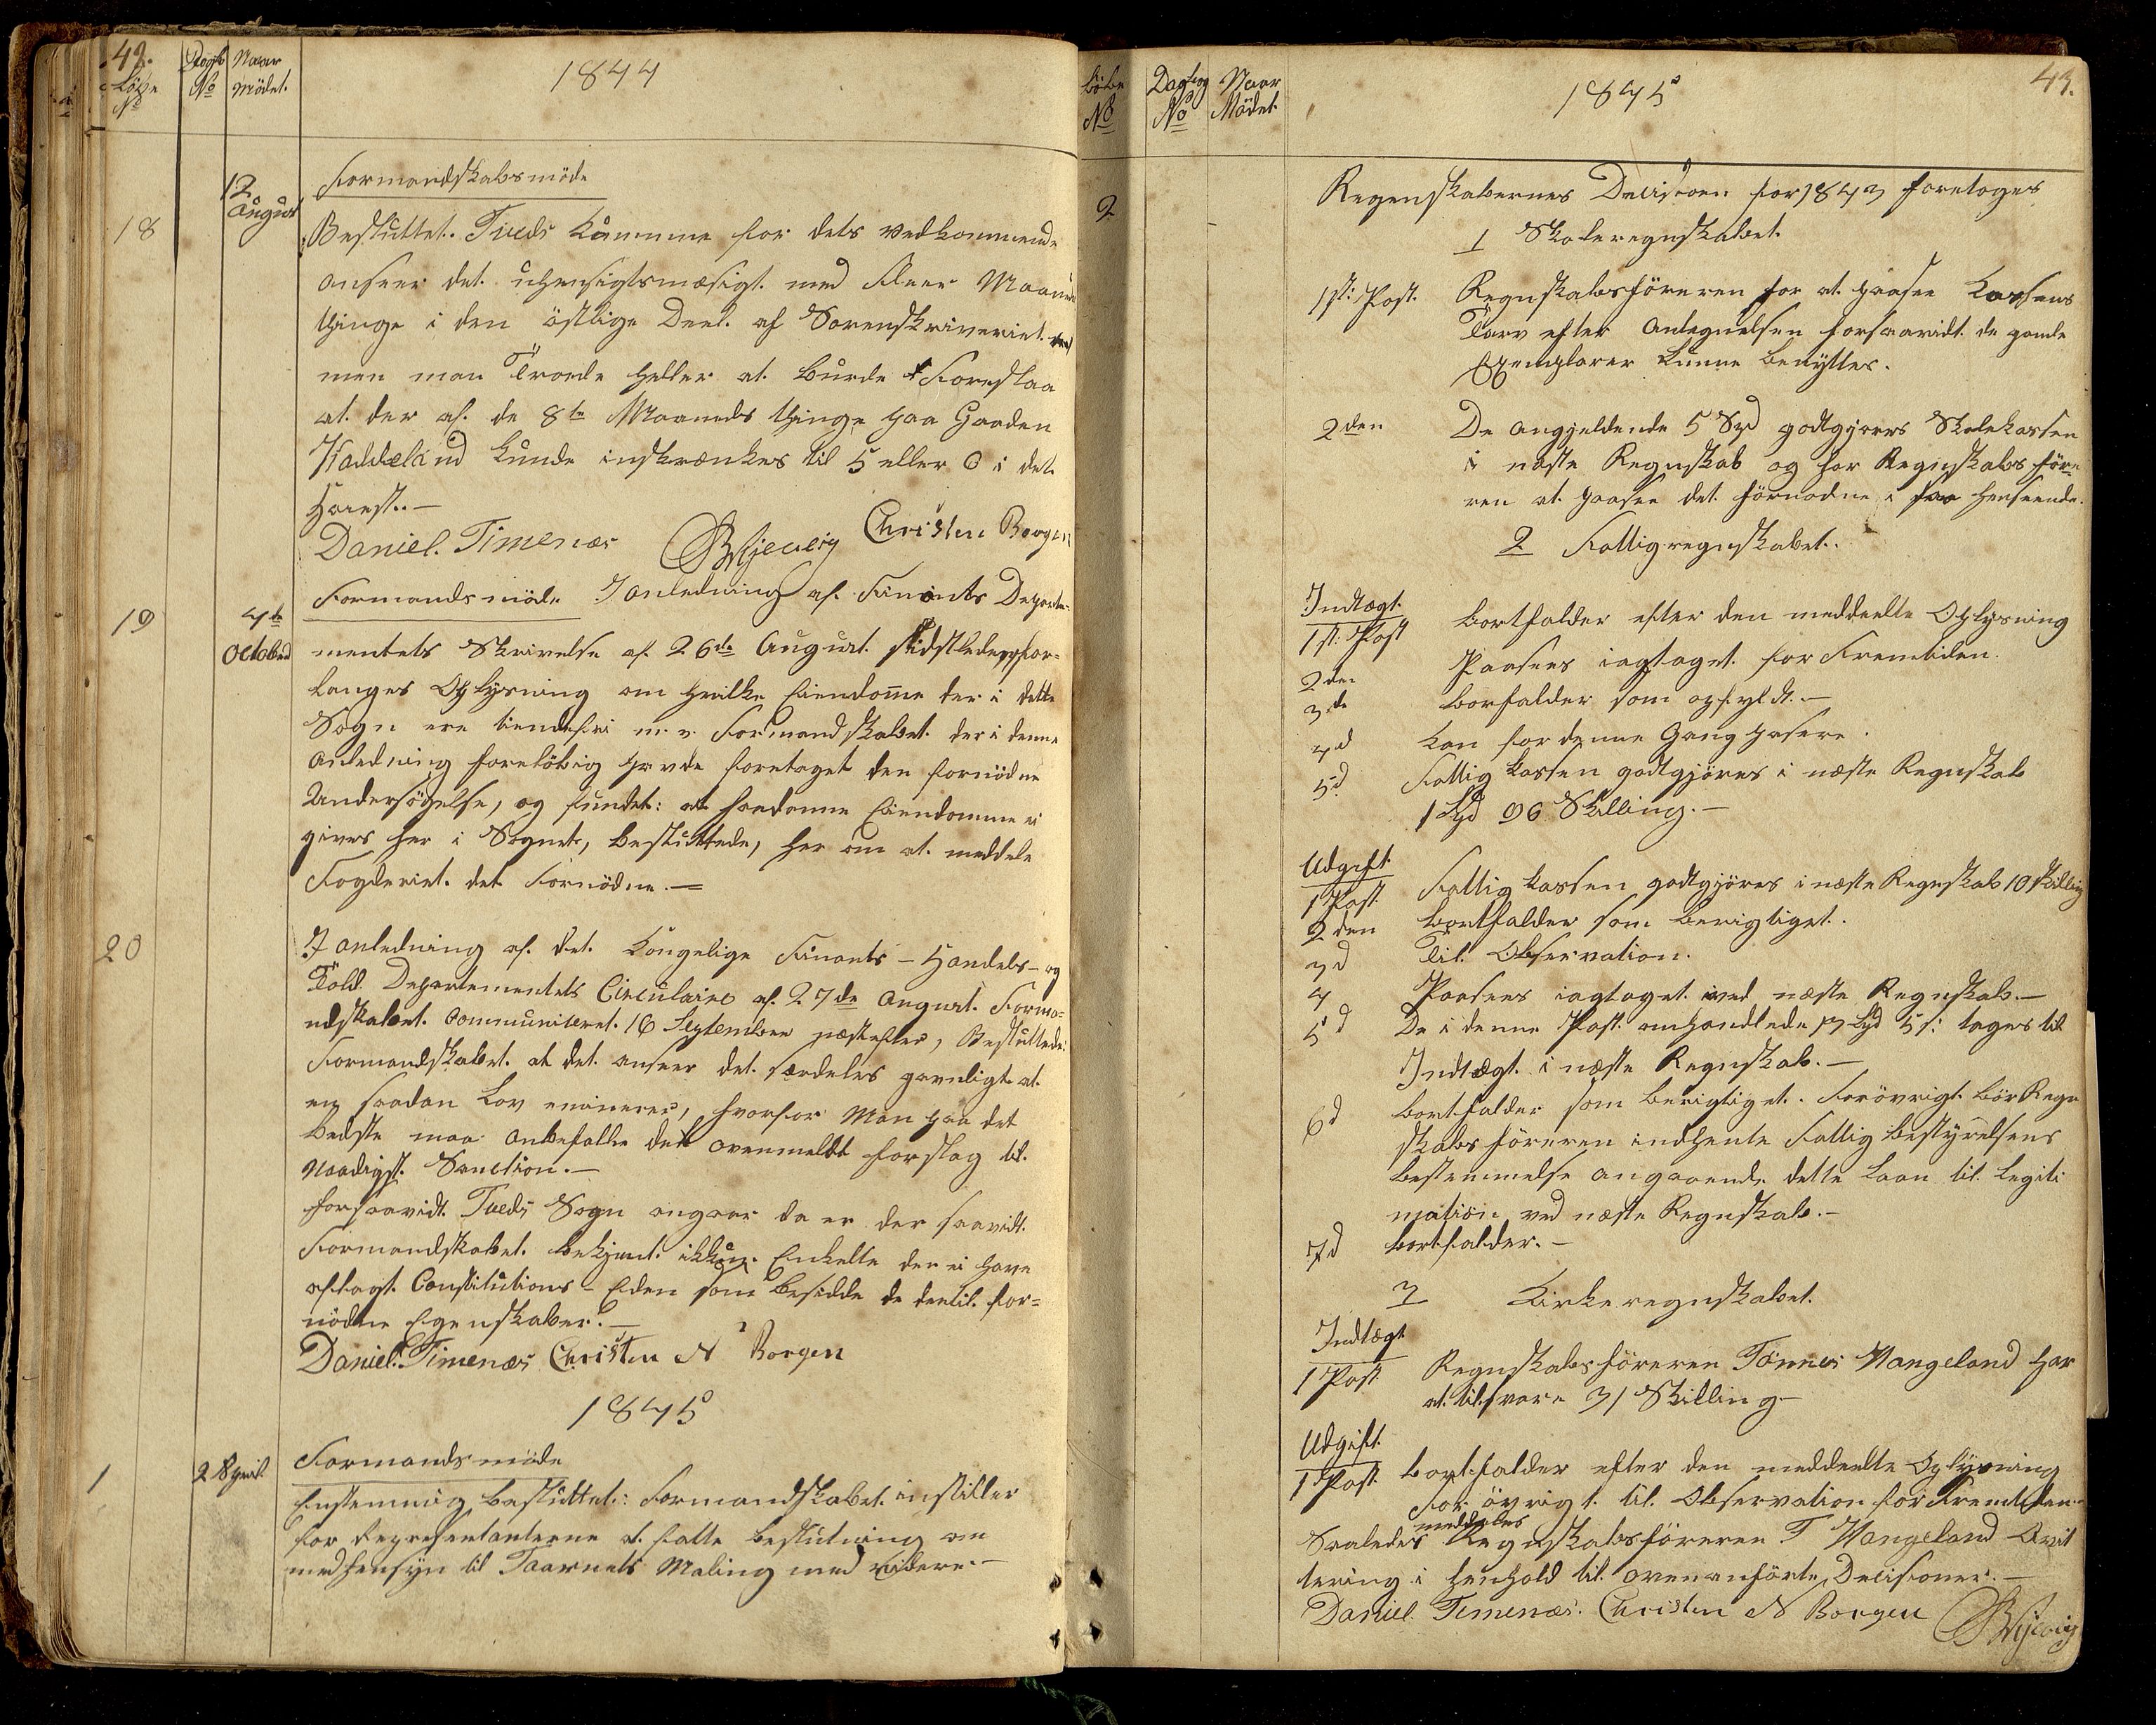 42.
Løbe No
Dagb No
Naar Mödet.
1844
12 August
Formandskabsmöde
18
Besluttet. Tveds Kummune for dets Vedkommende
anseer det uhensigtsmæsigt med fleer Maaneds
thinge i den östlige Deel af Sorenskriveriet
men man Troede heller at burde Foreslaa
at der af de 8te Maaneds thinge paa Gaarden
Haddeland kunde inskrænkes til 5 eller 6 i det
Höiest.-
Daniel Timenæs Christen Borgen
19
4de October
Formandsmöde I anledning af Finants Departe-
mentets Skrivelse af 26de August sidstleden for-
langes Oplysning om hvilke Eiendomme der i dette
Sogn ere tiendefri m.v. Formandskabet der i denne
Anledning foreløbig havde foretaget den fornödne
Undersögelse, og fundet: at saadanne Eiendomme ei
gives her i Sognet, besluttede, her om at meddele
Fogderiet det Fornödne.-
20
I anledning af det Kongelige Finants-Handels- og
Told Departementets Circulaire af 27de August Forma-
ndskabet Communiceret 16 September næstefter, Besluttede:
Formandskabet at det anseer det særdeles gavnligt at
en saadan Lov emaneres, hvorfor Man paa det
bedste maa anbefalle det ovenmeldt forslag til
Naadigst Sanction.-
forsaavidt Tveds Sogn angaar da er der saavidt
Formandskabet bekjendt ikkun Enkelte der ei have
aflagt Constitutions-Eden som besidde de dertil for-
nödne Egenskaber.-
Daniel Timenæs Christen N Borgen
1845
1
2 April
Formandsmöde
Enstemmig besluttet: Formandskabet instiller
for Representanterne at fatte beslutning om
med hensyn til Taarnets Maling med videre.-
Løbe No
Dagbog No
Naar Mödet
1845
43.
2
Regenskabernes Decision for 1843 foretoges
1 Skoleregnskabet.
1st: Post. Regnskabsföreren har at paasee Kassens
Tarv efter Antegnelsen forsaavidt de gamle
Exemplarer kunne benyttes.
2den De angjeldende 5 Spd godtgjøres Skolekassen
i næste Regnskab og har Regnskabsföre
ren at paasee det förnødne i saa henseende.
2 Fattigregnskabet.
Indtægt.
1st: Post bortfalder efter den meddeelte Oplysning
2den Paasees iagtaget for Fremtiden.
3de borfalder som opfyldt.-
4d Kan for denne Gang pasere.
5d Fattigkassen godtgjöres i næste Regnskab
1 Spd 96 Skilling.-
Udgift.
1 Post Fattigkassen godtgjöres i næste Regnskab 10 skilling
2den bortfalder som berigtiget.
3d Til Observation.
4 Paasees iagtaget ved næste Regnskab.-
5d De i denne Post omhandlede 13 Spd 5 s: tages til
Indtægt i næste Regnskab.-
6d bortfalder som berigtiget. Forövrigt bör Regn
skabsföreren indhente Fattigbestyrelsens
bestemmelse angaaende dette Laan til legiti
mation ved næste Regnskab.-
7d bortfalder.-
3 Kirkeregnskabet.
Indtægt
1 Post Regnskabsföreren Tönnes Vangeland har
at tilsvare 31 Skilling-
Udgift.
1 Post bortfalder efter den meddeelte Oplysning
For övrigt til Observation för Fremtiden.-
Saaledes meddeles Regnskabsföreren T Vangeland Qvit
tering i henhold til ovenanförte Decisioner.-
Daniel Timenæs. Christen N Borgen